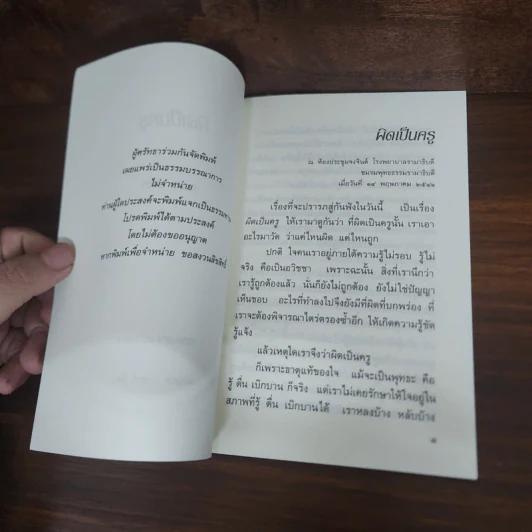 ผู้ศรัทธาร่วมกันจัดพิมพ์
เผยแพร่เป็นธรรมบรรณาการ
ไม่จำหน่าย
ท่านผู้ใดประสงค์จะพิมพ์แจกเป็นธรรมทาน
โปรดพิมพ์ได้ตามประสงค์
โดยไม่ต้องขออนุญาต
หากพิมพ์เพื่อจำหน่าย ขอสงวนลิขสิทธิ์
ผิดเป็นครู
ณ ห้องประชุมจงจินต์ โรงพยาบาลรามาธิบดี
ชมรมพุทธธรรมรามาธิบดี
เมื่อวันที่ ๑๔ พฤษภาคม ๒๕๔๒
เรื่องที่จะปรารภสู่กันฟังในวันนี้ เป็นเรื่อง
ผิดเป็นครู ให้เรามาดูกันว่า ที่ผิดเป็นครูนั้น เราเอา
อะไรมาวัด ว่าแค่ไหนผิด แค่ไหนถูก
ปกติ ใจคนเราอยู่ภายใต้ความรู้ไม่รอบ รู้ไม่
จริง คือเป็นอวิชชา เพราะฉะนั้น สิ่งที่เรานึกว่า
เรารู้ถูกต้องแล้ว นั่นก็ยังไม่ถูกต้อง ยังไม่ใช่ปัญญา
เห็นชอบ อะไรที่ทำลงไปจึงยังมีที่ผิดที่บกพร่อง ที่
เราจะต้องพิจารณาไตร่ตรองซ้ำอีก ให้เกิดความรู้ชัด
รู้แจ้ง
แล้วเหตุใดเราจึงว่าผิดเป็นครู
ก็เพราะธาตุแท้ของใจ แม้จะเป็นพุทธะ คือ
รู้ ตื่น เบิกบาน ก็จริง แต่เราไม่เคยรักษาให้ใจอยู่ใน
สภาพที่รู้ ตื่น เบิกบานได้ เราหลงบ้าง หลับบ้าง